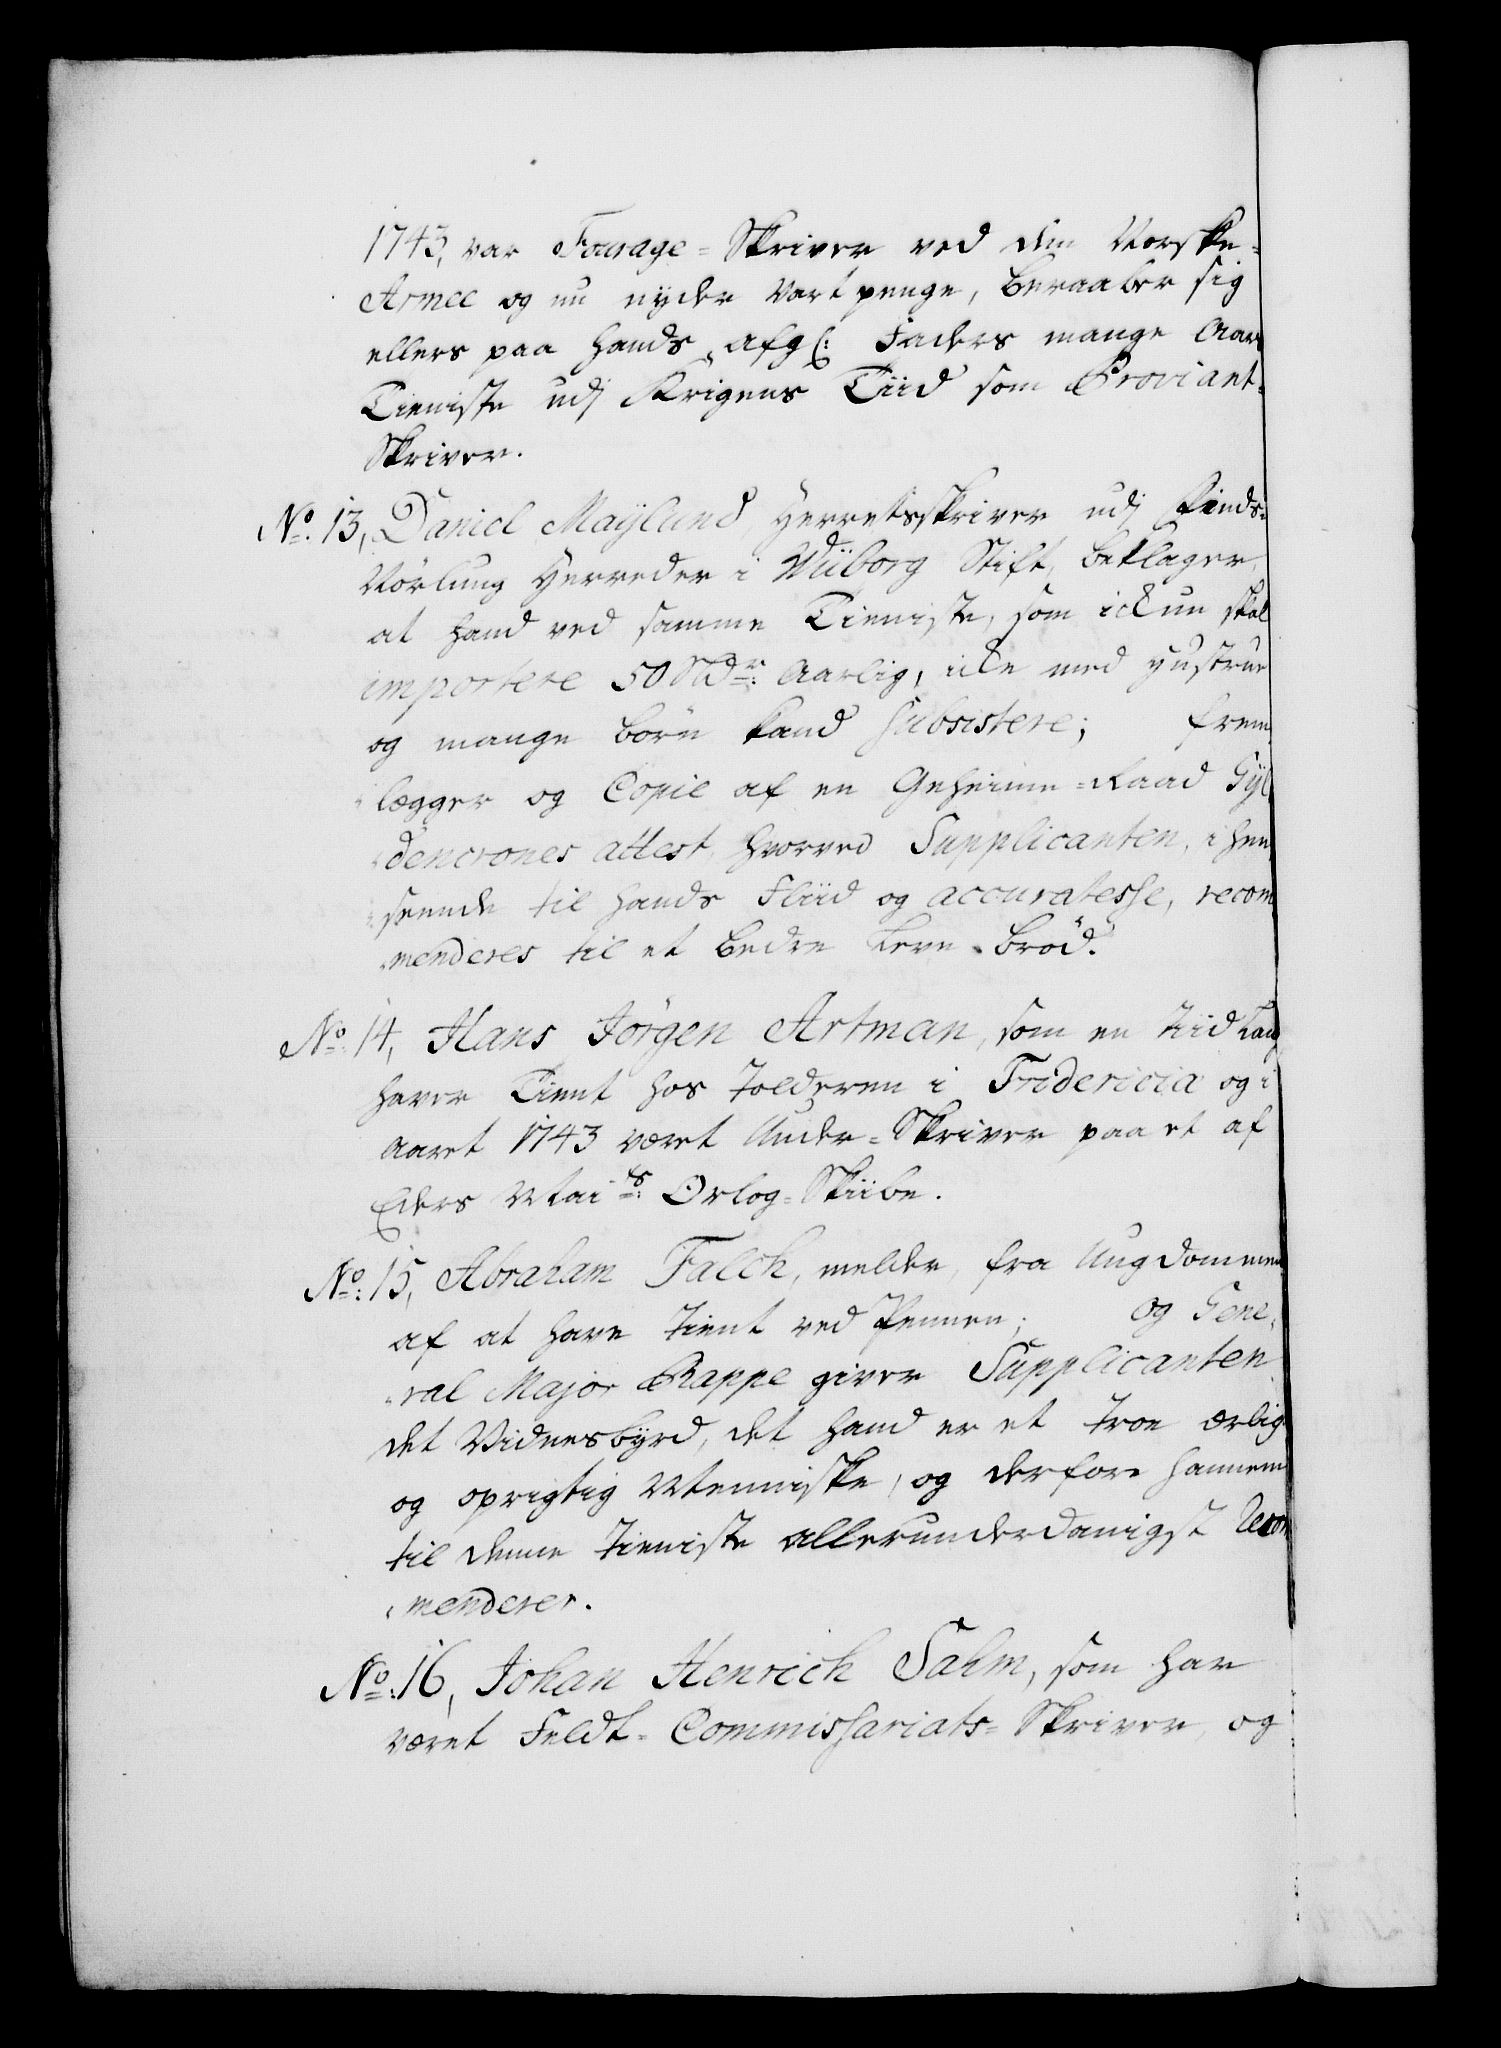 1743, var Fourage-Skriver ved den Norske-
Armee og nu nyder Vartpenge, beraaber sig
ellers paa hands afg: Faders mange Aars
Tieniste udj Krigens Tiid som Proviant-
Skriver.
No. 13, Daniel Maÿlund Herretsskriver udj Finds-
Vörlung Herreder i Wiiborg Stift, beklager,
at hand ved samme Tieniste, som ickun skal
importere 50 Rdr: Aarlig, icke med Hustrue
og mange børn kand subsistere; frem
lægger og Copie af en Geheime-Raad Gÿl
dencrones attest, hvorved Supplicanten, i hen
seende til hands Fliid og accuratesse, recom
menderes til et bedre Leve-brød.
No. 14, Hans Jörgen Artman, som en tiid lang
haver Tient hos Tolderen i Fridericia og i
Aaret 1743 været Under-Skriver paa et af
Eders Mai.ts: Orlog-Skiibe.
No: 15, Abraham Falck, melder, fra Ungdommen
af at have tient ved Pennen; og Gene,
ral Major Rappe giver Supplicanten
det Vidnesbyrd, det hand er et troe ærlig
og oprigtig Menniske, og derfore hannem
til denne tieniste allerunderdanigst recom
menderer.
No: 16, Johan Henrich Sahm, som har
været Feldt-Commissariats-Skriver, og